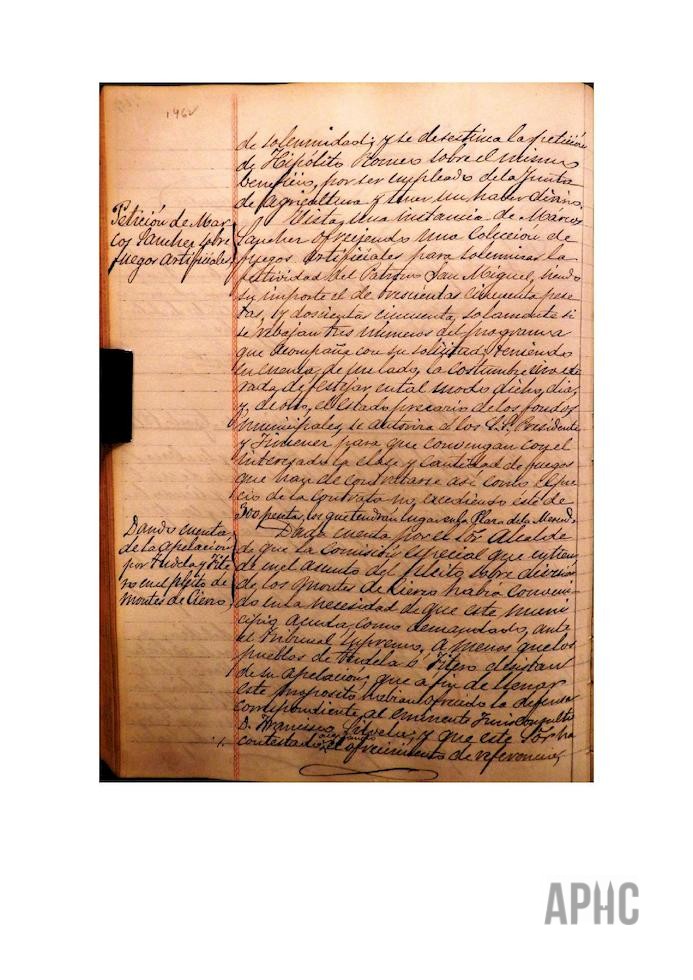 1962
de solemnidad; y se desestima la petición
de Hipólito Romeo sobre el mismo
beneficio, por ser empleado de la Junta
de Agricultura y tener un haber diario.
Petición de Mar
cos Sanchez sobre
fuegos artificiales.
Vista una instancia de Marcos
Sanchez ofreciendo una colección de
fuegos artificiales para solemnizar la
festividad del Patrono San Miguel, siendo
su importe el de trescientas cincuenta pese
tas, y doscientas cincuenta, solamente si
se rebajan tres números del programa
que acompaña con su solicitud; teniendo
en cuenta, de un lado, la costumbre
de festejar en tal modo dicho dia,
y, de otro, el estado precario de los fondos
municipales, se autoriza a los S.S. Presidente
y Jimenez para que convengan con el
interesado la clase y cantidad de fuegos
que han de contratarse asi como el pre
cio de la contrata no excediendo este de
300 pesetas, los que tendrán lugar en la Plaza de la Merced.
Dando cuenta
de la apelacion
por Tudela y Fite
ro en el pleito de
Montes de Cierzo.
Dada cuenta por el Sor. Alcalde
de que la Comisión especial que entien
de en el asunto del pleito sobre division
de los Montes de Cierzo habia conveni
do en la necesidad de que este muni
cipio acuda, como demandado, ante
el Tribunal Supremo, a menos que los
pueblos de Tudela ó Fitero desistan
de su apelacion; que a fin de llenar
este proposito habian ofrecido la defensa
correspondiente al eminente Jurisconsulto
D. Francisco Silvela; y que este Sor. ha
contestado el ofrecimiento de referencia,
APHC